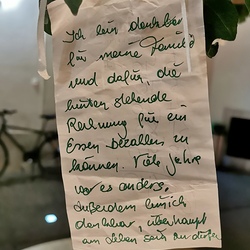 Ich bin dankbar
für meine Familie
und dafür, die
hinten stehende
Rechnung für ein
Essen bezahlen zu
können. Viele Jahre
war es anders,
außerdem bin ich
dankbar, überhaupt
am Leben sein zu dürfen